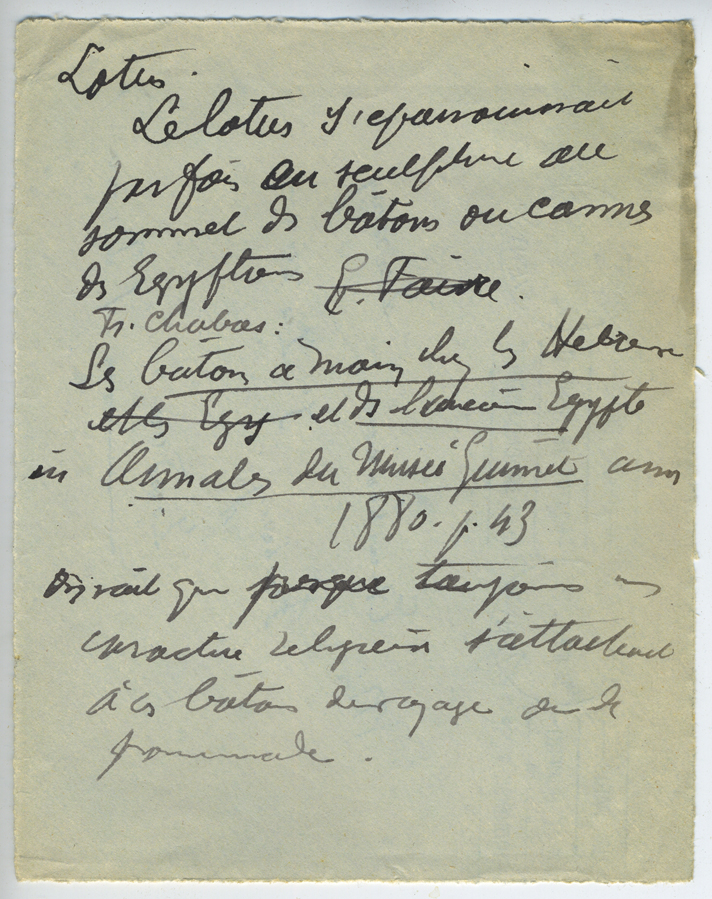 Lotus.
Le lotus s'épanouissait
parfois en sculpture au
sommet des bâtons ou cannes
des Egyptiens E. Faivre.
Fr. Chabas:
Les bâtons a main chez les Hebreux
et les Egy et de l'ancienne Egypte
in Annales du Musée Guimet ann
1880. p. 43
On sait que presque toujours un
caractère religieux s'attachait
à ces bâtons de voyage ou de
promenade.